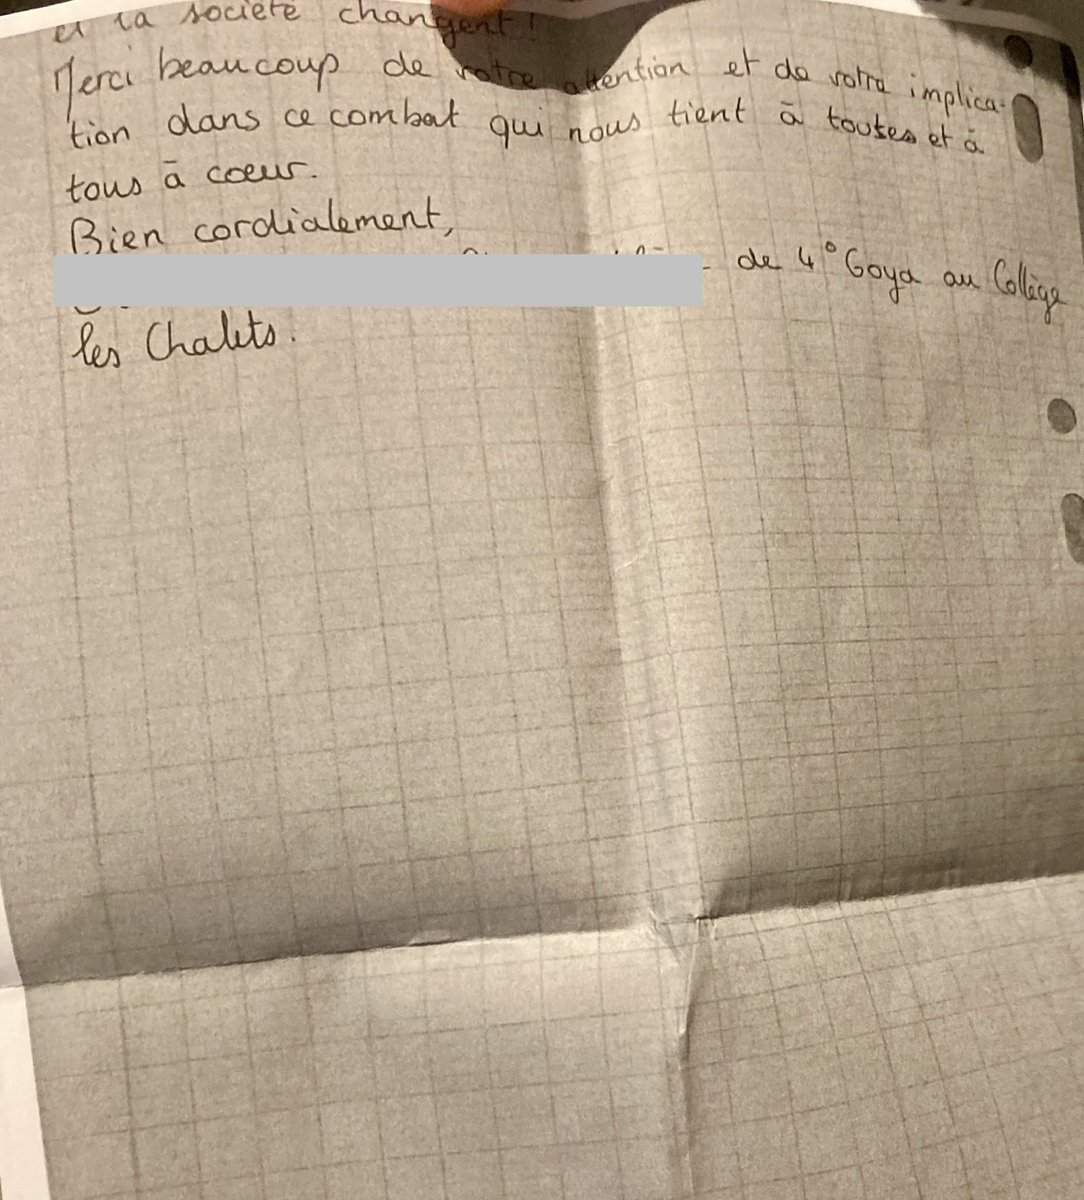 et la société changent !
Merci beaucoup de votre attention et de votre implica-
tion dans ce combat qui nous tient à toutes et à
tous à coeur.
Bien cordialement,
de 4° Goya au Collège
les Chalets.